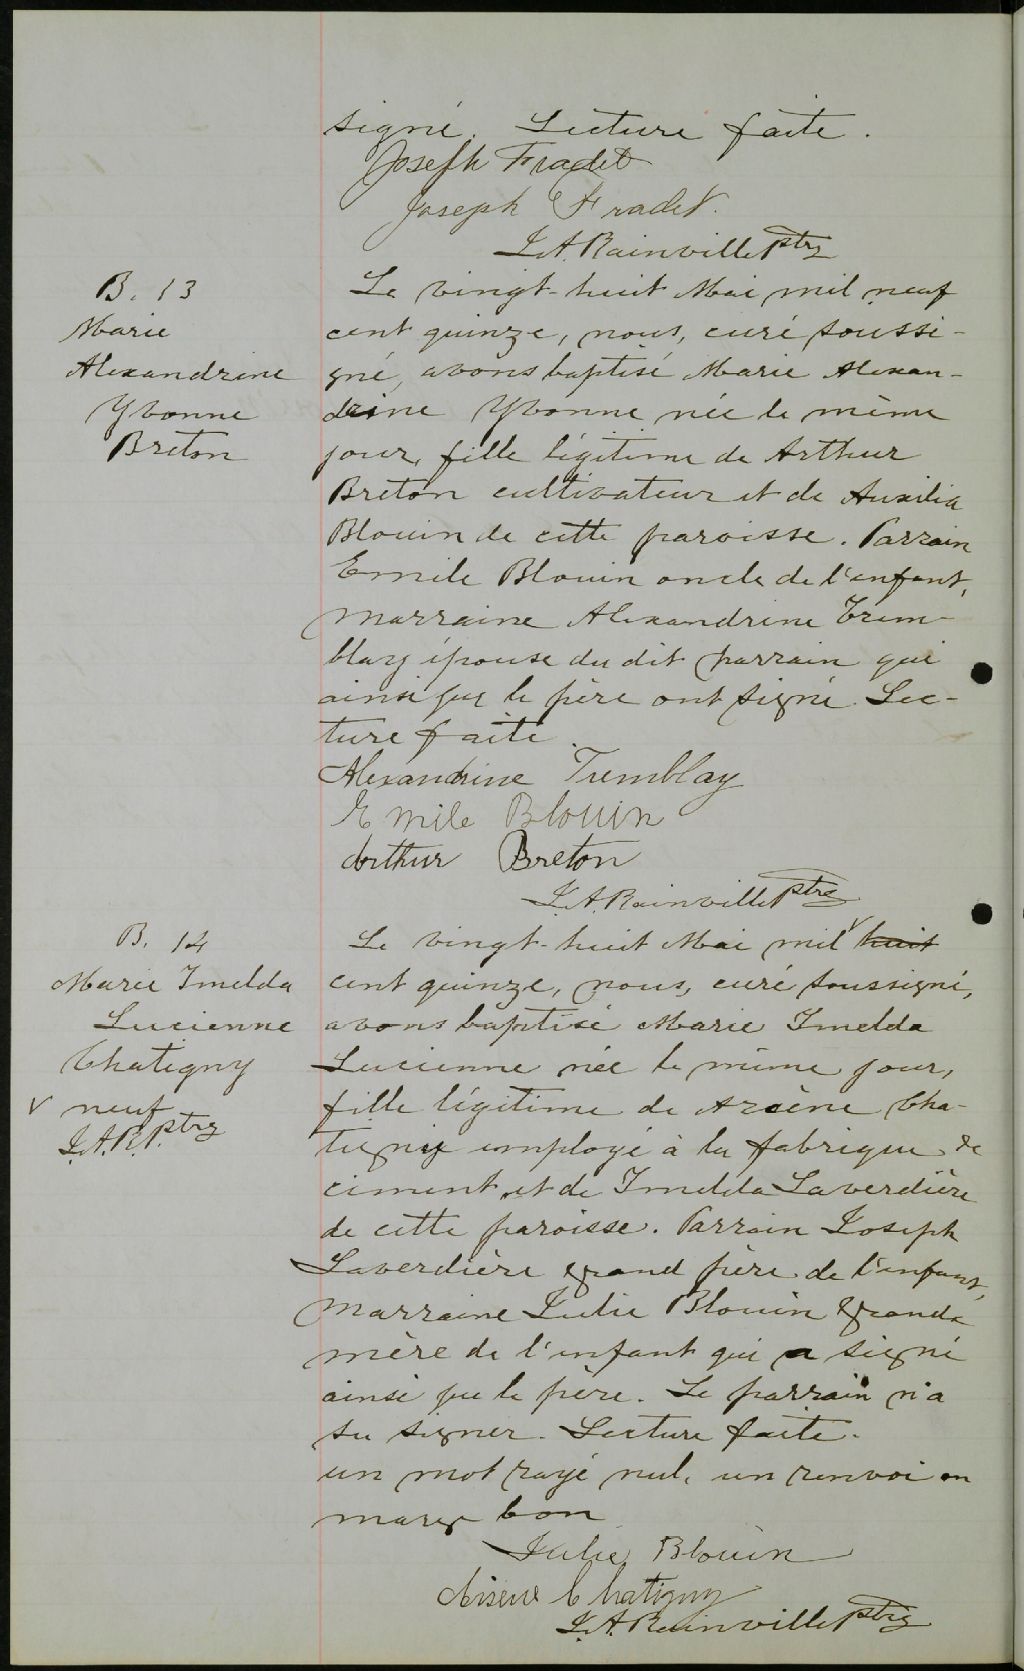 signé. Lecture faite.
Joseph Fradet
Joseph Fradet.
J.A. Rainville Ptre
B. 13
Marie
Alexandrine
Yvonne
Breton
Le vingt-huit Mai mil neuf
cent quinze, nous, curé soussi-
gné, avons baptisé Marie Alexan-
drine Yvonne née le même
jour, fille légitime de Arthur
Breton cultivateur et de Auxilia
Blouin de cette paroisse. Parrain
Emile Blouin oncle de l'enfant,
marraine Alexandrine Trem-
blay épouse du dit parrain qui
ainsi que le père ont signé. Lec-
ture faite.
Alexandrine Tremblay
Emile Blouin
Arthur Breton
J.A. Rainville Ptre
B. 14
Marie Imelda
Lucienne
Chatigny
v neuf
J.A.R. Ptre
Le vingt-huit Mai mil v huit
cent quinze, nous, curé soussigné,
avons baptisé Marie Imelda
Lucienne née le même jour,
fille légitime de Arsène Cha-
tigny employé à la fabrique de
ciment et de Imelda Laverdière
de cette paroisse. Parrain Joseph
Laverdière grand père de l'enfant,
marraine Julie Blouin grande
mère de l'enfant qui a signé
ainsi que le père. Le parrain n'a
su signer. Lecture faite.
un mot rayé nul, un renvoi en
marge bon
Julie Blouin
Arsène Chatigny
J.A. Rainville Ptre